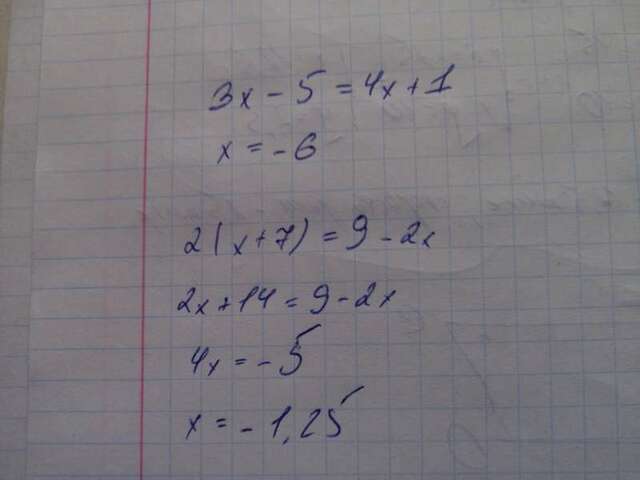 3x - 5 = 4x + 1
x = - 6
2(x + 7) = 9 - 2x
2x + 14 = 9 - 2x
4x = - 5
x = - 1,25